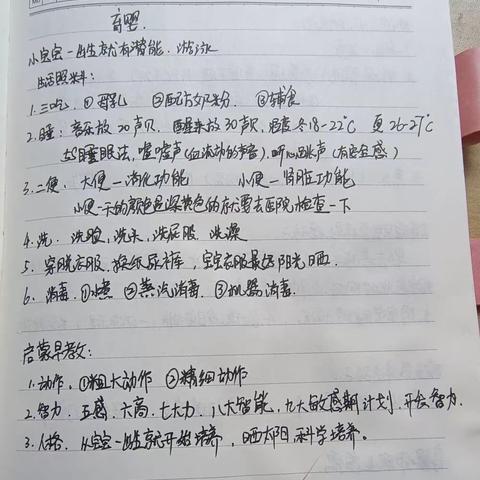 育婴.
小宝宝一出生就有潜能. 游泳
生活照料:
1. 三吃, ①母乳 ②配方奶粉 ③辅食
2. 睡: 音乐放20声贝, 醒来放30声贝, 温度冬18-22℃ 夏26-27℃
睡眠法, 嘘嘘声(血流动的声音), 听心跳声(有安全感)
3. 二便, 大便一消化功能 小便一肾脏功能
小便一天的颜色是深黄色的就要去医院检查一下
4. 洗. 洗脸, 洗头, 洗屁股. 洗澡
5. 穿脱衣服. 换纸尿裤, 宝宝衣服最好阳光晒.
6. 消毒. ①煮 ②蒸汽消毒. ③机器消毒.
启蒙早教:
1. 动作. ①粗大动作 ②精细动作
2. 智力. 五感. 六高. 七大力. 八大智能. 九大敏感期计划. 开发智力.
3. 人格. 从宝宝一出生就开始培养, 晒太阳, 科学培养。